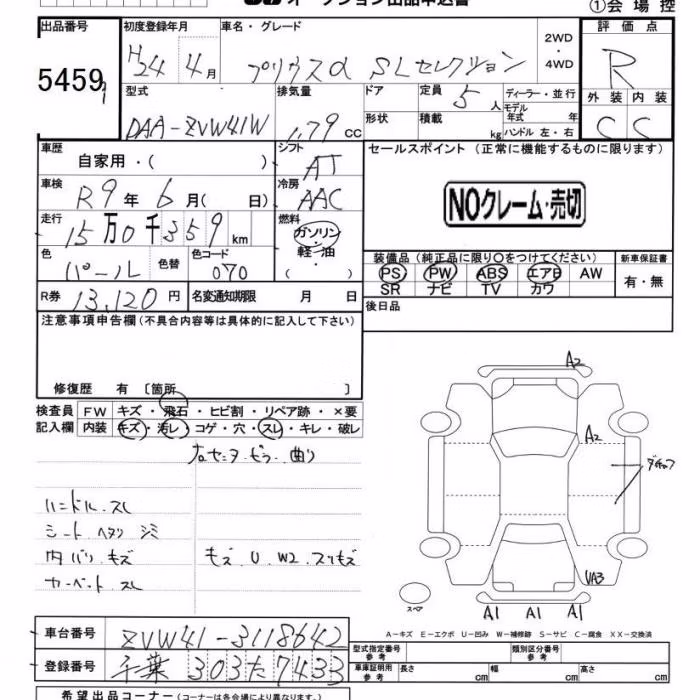 オークション出品申込書
①会場控
出品番号 初度登録年月 車名・グレード 評価点
5459 H24 4月 プリウスα SLセレクション 2WD・4WD R
型式 排気量 ドア 定員 5人 ディーラー・並行 外装 内装
DAA-ZVW41W 1.79 cc 形状 積載 kg モデル年式 年 ハンドル 左・右 C C
車歴 自家用・( ) シフト AT セールスポイント (正常に機能するものに限ります)
車検 R9年 6月( 日) 冷房 AAC NOクレーム・売切
走行 15万0千359km 燃料 ガソリン・軽油 ( )
色 パール 色替 色コード 070 装備品 (純正品に限り○をつけてください) 新車保証書
PS PW ABS エアB AW 有・無
SR ナビ TV カワ
R券 13,120円 名変通知期限 月 日 後日品
注意事項申告欄 (不具合内容等は具体的に記入して下さい)
修復歴 有 〔箇所 〕
検査員 FW キズ・飛石・ヒビ割・リペア跡・×要
記入欄 内装 キズ・汚レ・コゲ・穴・スレ・キレ・破レ
右センタピラー曲り
ハンドル スレ
シート ヘタリ シミ
内バリ キズ キズ U W2 スリキズ
カーペット スレ
A2
A2
UA3
スペア
A1 A1 A1
A-キズ E-エクボ U-凹み W-補修跡 S-サビ C-腐食 XX-交換済
車台番号 ZVW41-3118642 型式指定番号 参考 類別区分番号 参考
登録番号 千葉 303 た 7433 車庫証明用 参考 長さ cm 幅 cm 高さ cm
希望出品コーナー (コーナーは各会場により異なります。)